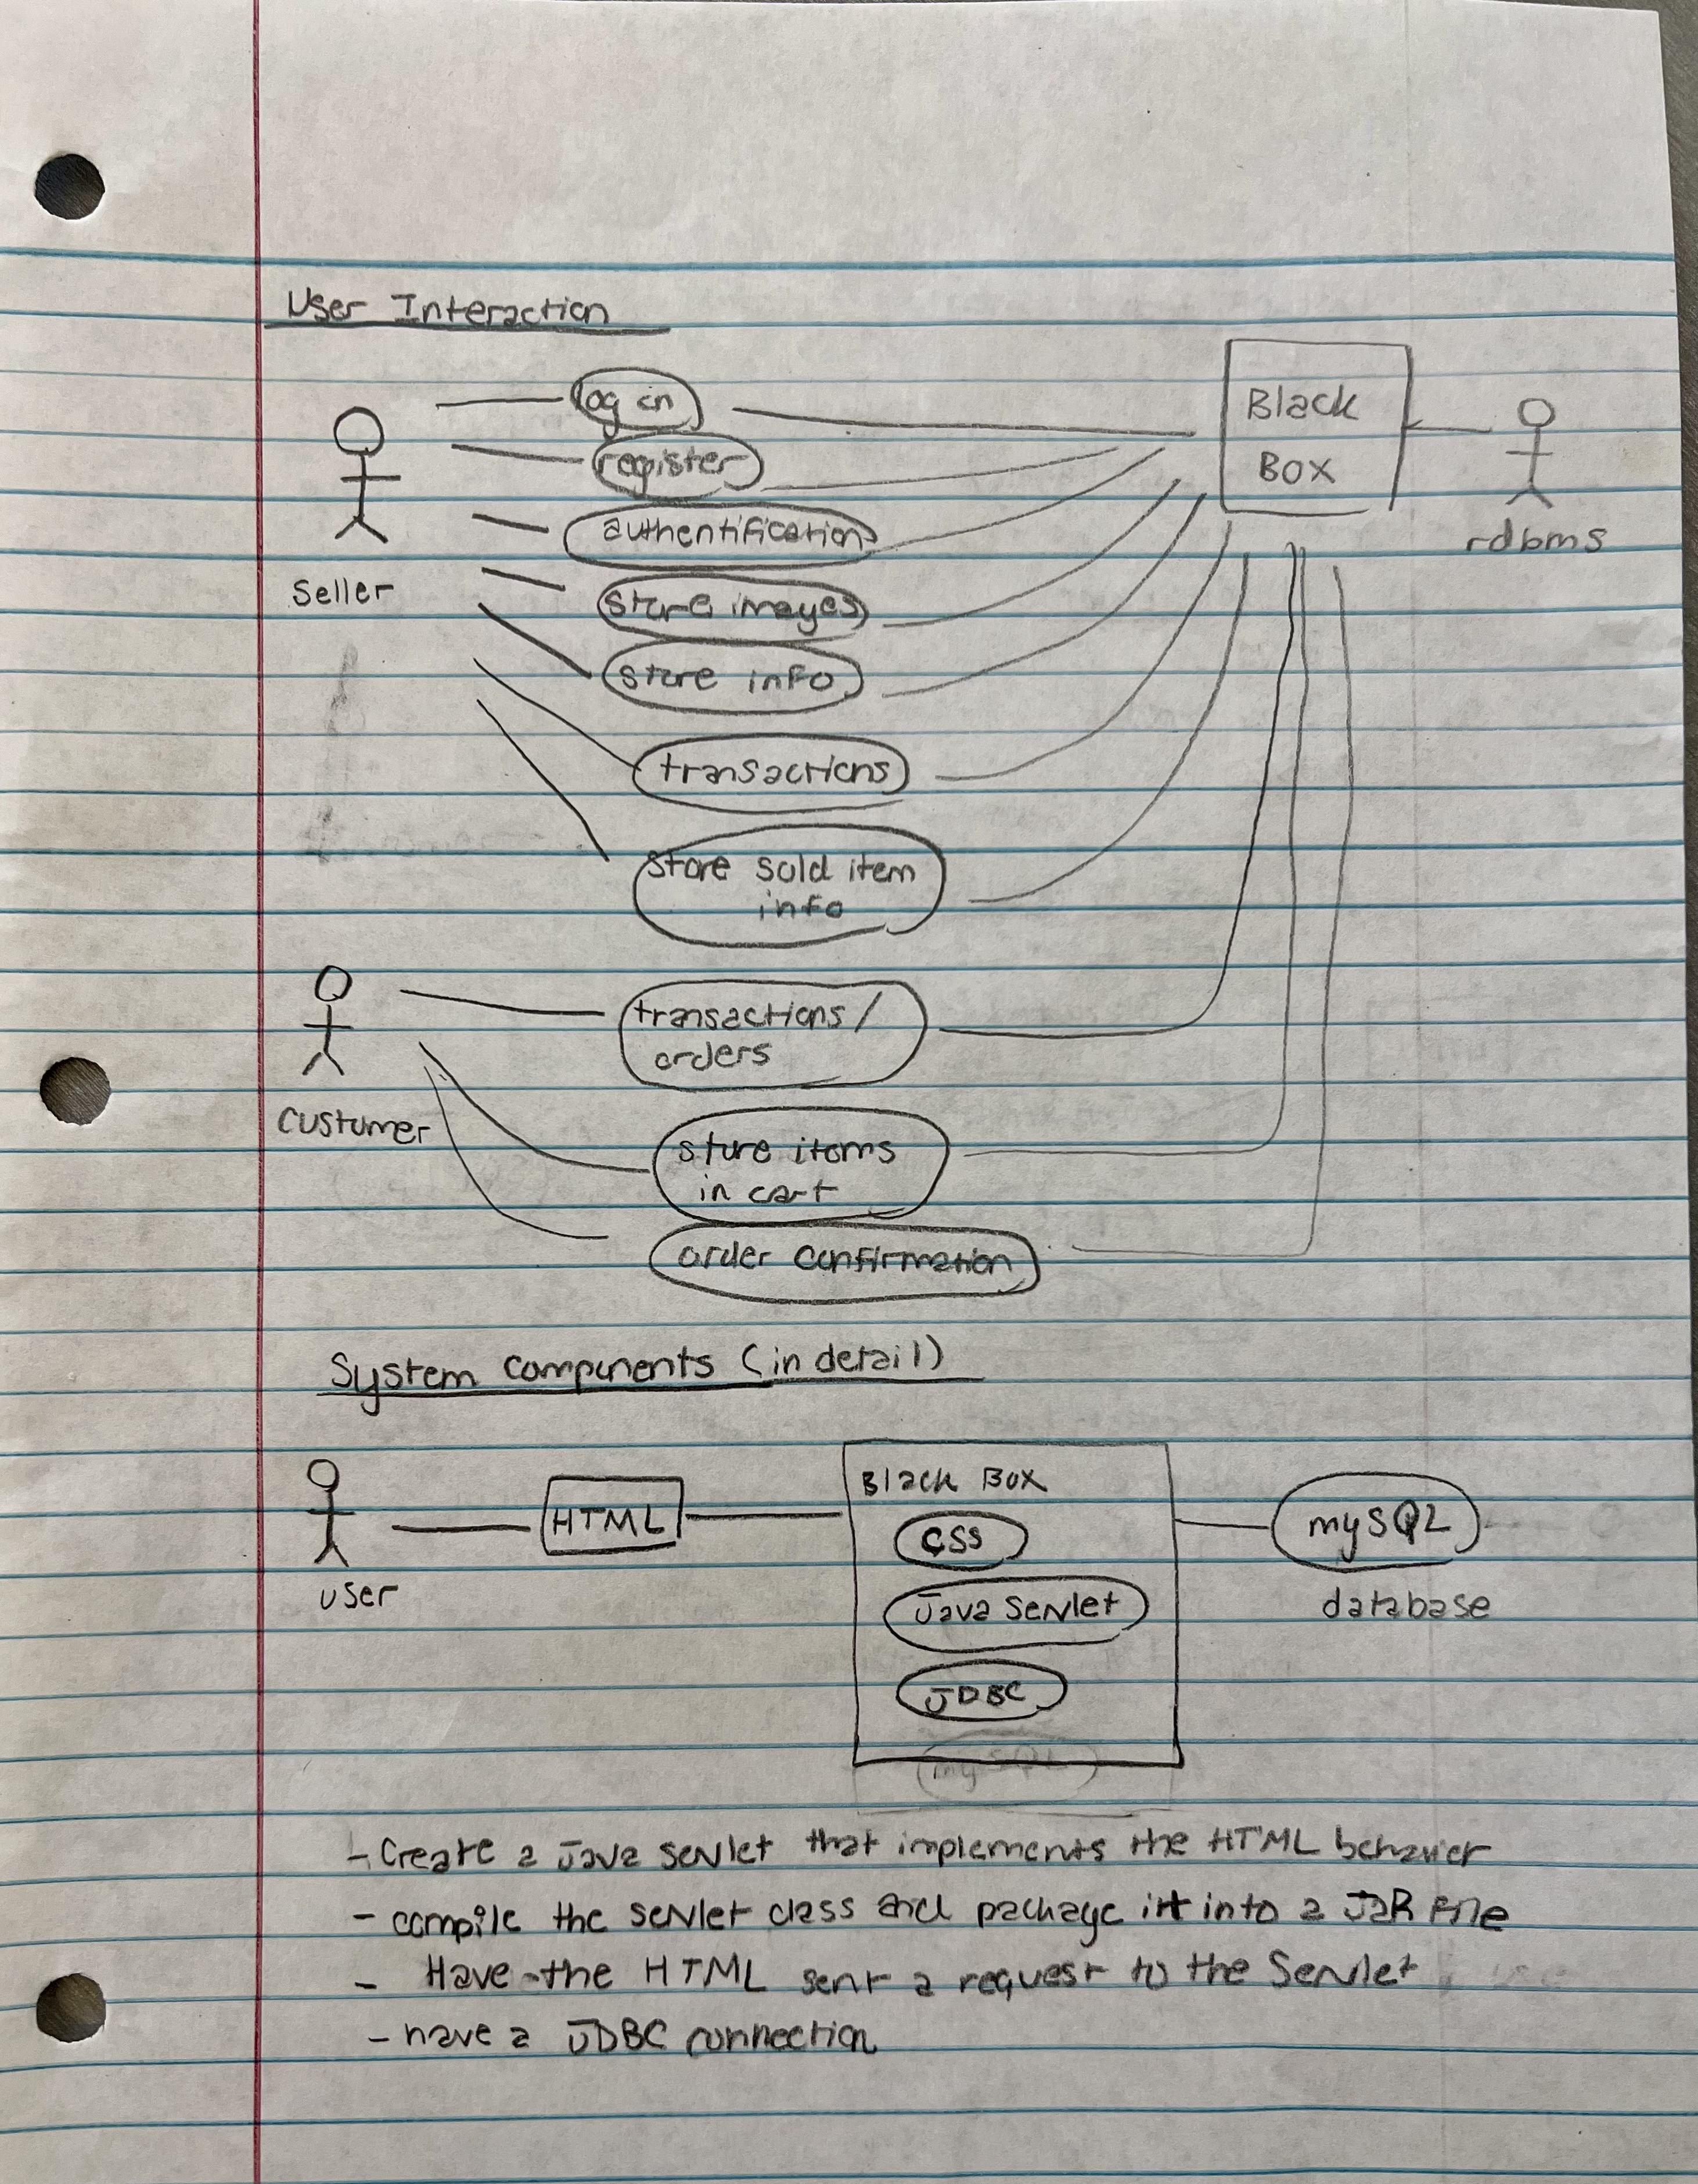 User Interaction
log in
register
authentification
store images
store info
transactions
store sold item
info
Seller
Black
Box
rdbms
transactions/
orders
store items
in cart
order confirmation
Customer
System components (in detail)
user
HTML
Black Box
CSS
Java Servlet
JDBC
mySQL
mySQL
database
- Create a Java servlet that implements the HTML behavior
- compile the servlet class and package it into a JaR file
- Have the HTML sent a request to the Servlet
- have a JDBC connection